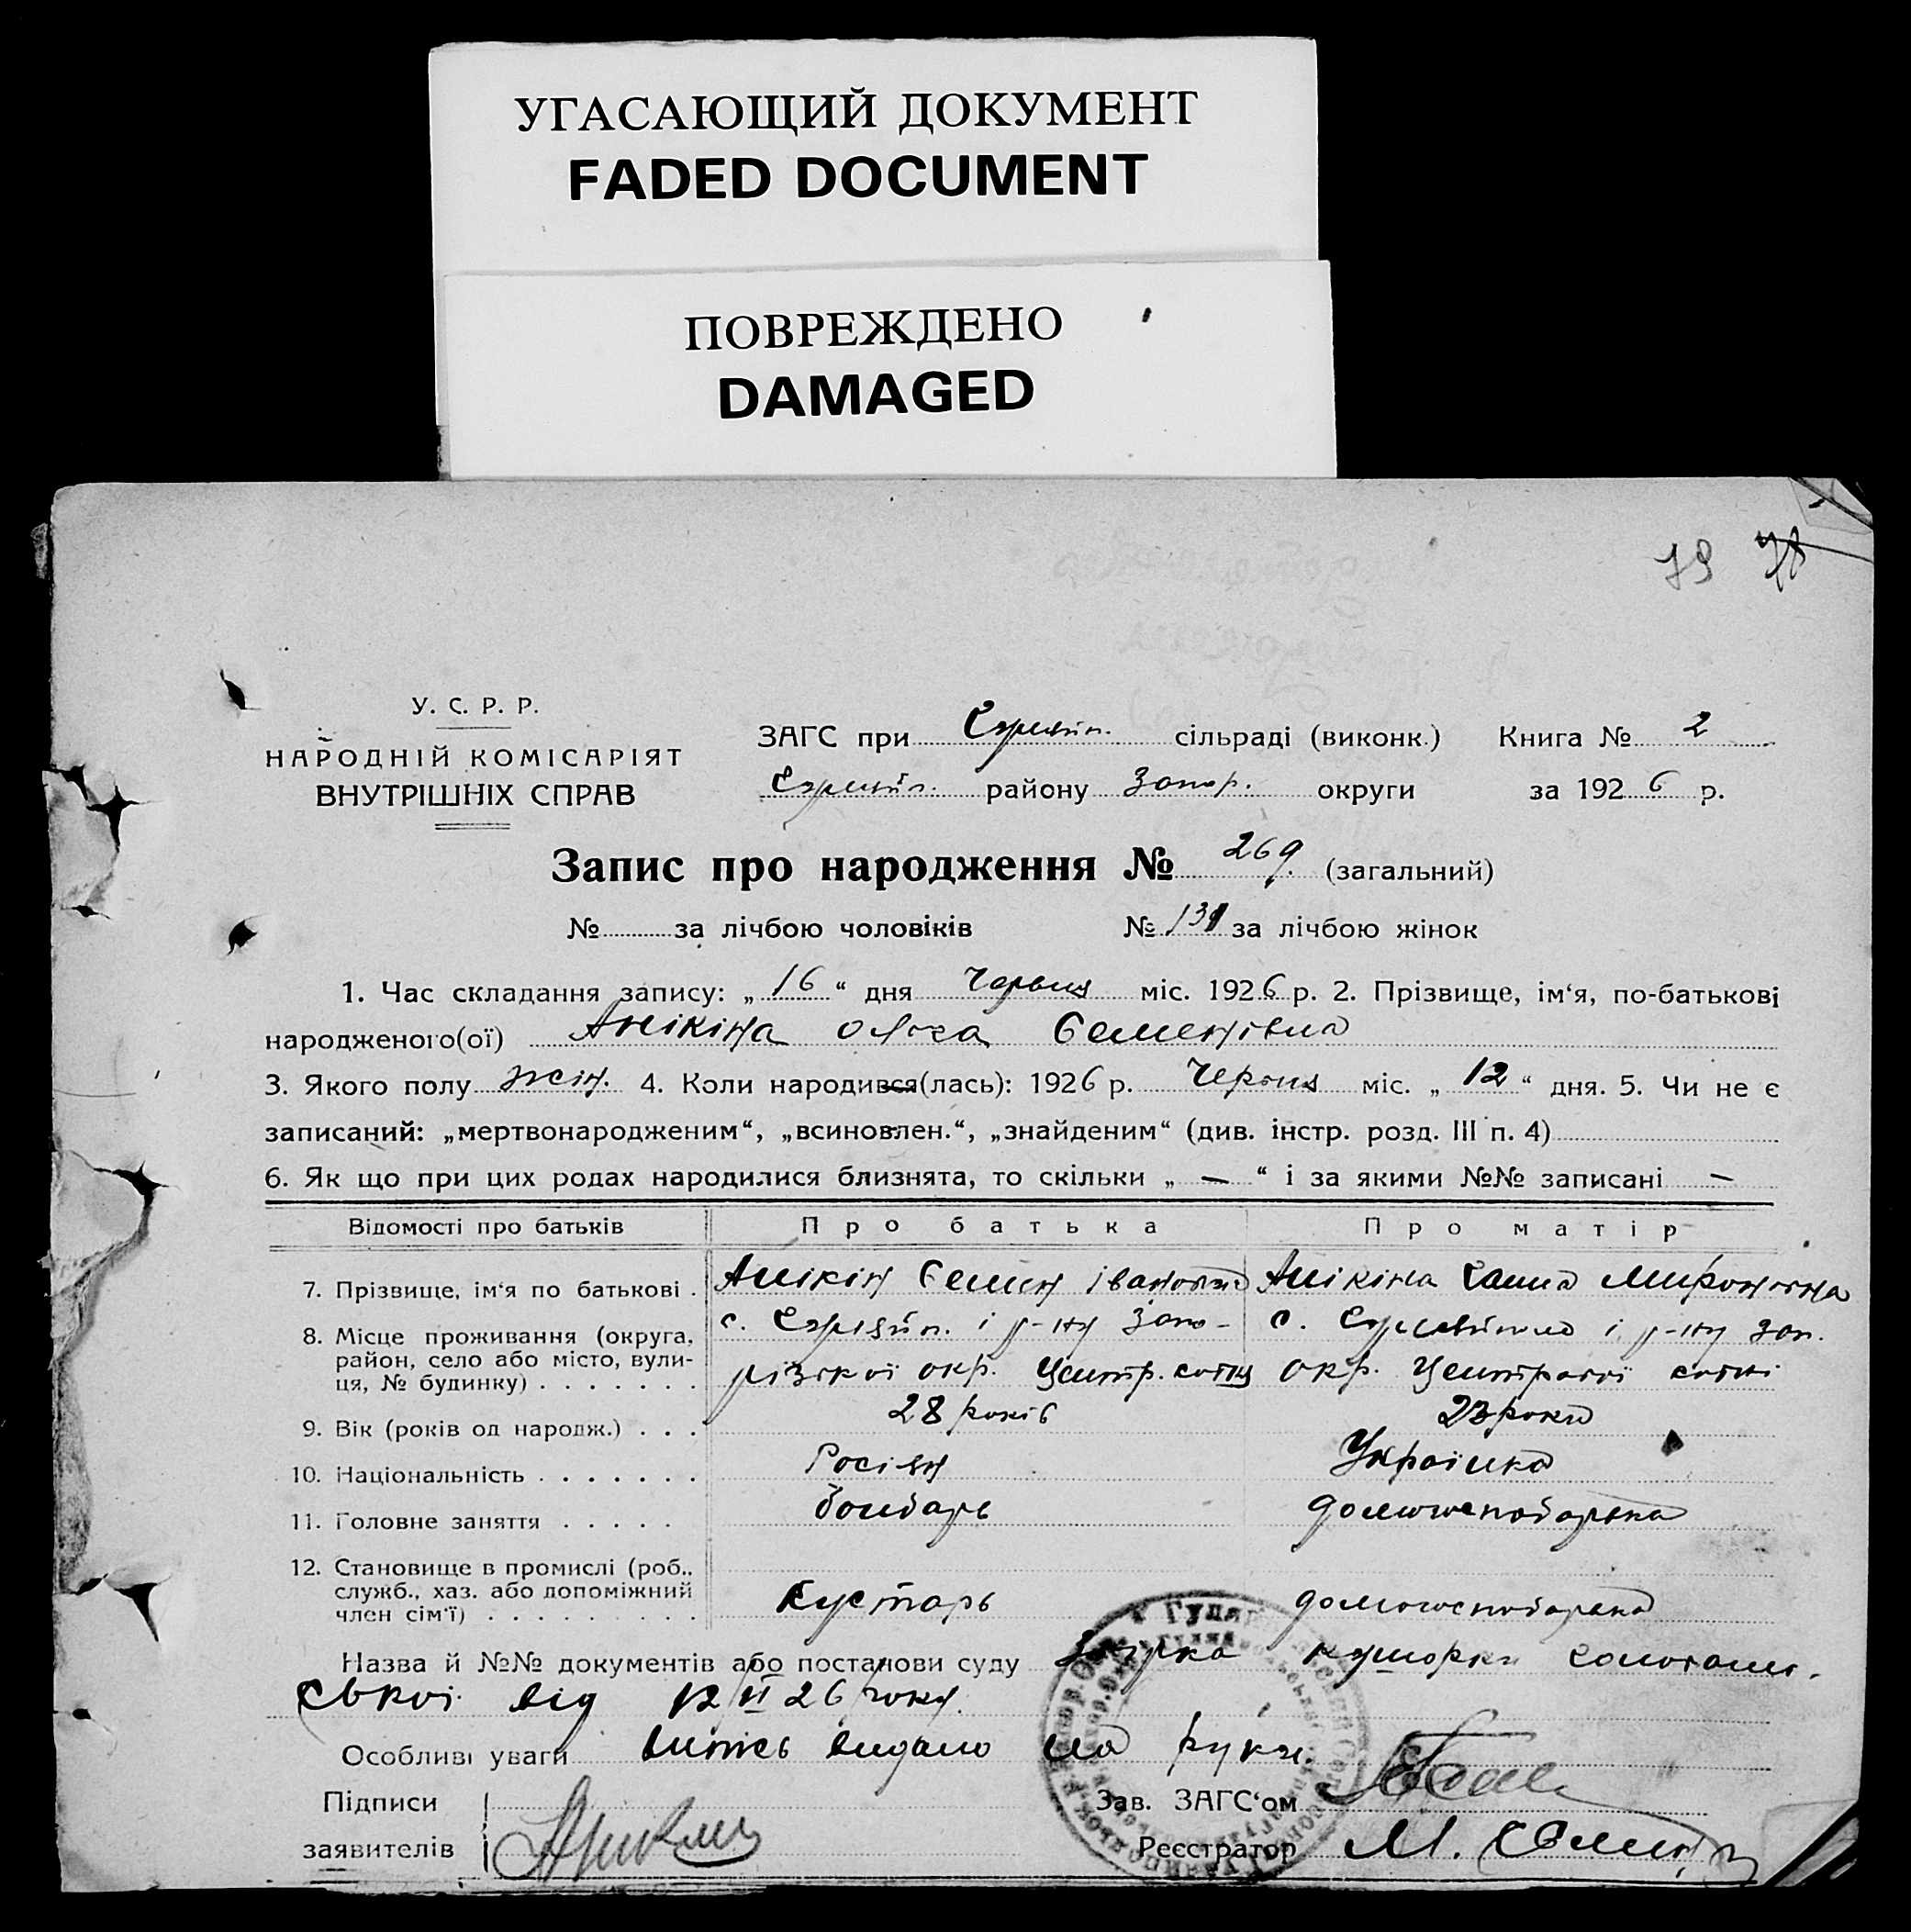 УГАСАЮЩИЙ ДОКУМЕНТ
FADED DOCUMENT
ПОВРЕЖДЕНО
DAMAGED
79 78
У. С. Р. Р.
НАРОДНІЙ КОМІСАРІЯТ
ВНУТРІШНІХ СПРАВ
ЗАГС при Гуляйп. сільраді (виконк.) Книга № 2
Гуляйп. району Запор. округи за 1926 р.
Запис про народження № 269. (загальний)
№ за лічбою чоловіків № 131 за лічбою жінок
1. Час складання запису: „16“ дня Червня міс. 1926 р. 2. Прізвище, ім‘я, по-батькові
народженого(ої) Анікіна Ольга Семенівна
3. Якого полу жін. 4. Коли народився(лась): 1926 р. Червня міс. „12“ дня. 5. Чи не є
записаний: „мертвонародженим“, „всиновлен.“, „знайденим“ (див. інстр. розд. III п. 4)
6. Як що при цих родах народилися близнята, то скільки „—“ і за якими №№ записані —
Відомості про батьків Про батька Про матір
7. Прізвище, ім‘я по батькові . Анікін Семен Іванович Анікіна Ганна Миронівна
8. Місце проживання (округа, с. Гуляйп. і р-ну Запо- с. Гуляйполе і р-ну Зап.
район, село або місто, вули-
ця, № будинку) . . . . . . . різької окр. Центр. сотні окр. Центральної сотні
9. Вік (років од народж.) . . . 28 років 23 роки
10. Національність . . . . . . . Росіян Українка
11. Головне заняття . . . . . Бондарь домогосподарька
12. Становище в промислі (роб.,
служб., хаз. або допоміжний
член сім‘ї) . . . . . . . . . Кустарь домогосподарька
Назва й №№ документів або постанови суду
ської від 12/VI 26 року.
Особливі уваги витяг видано на руки.
Підписи Зав. ЗАГС‘ом
заявителів Реєстратор М.